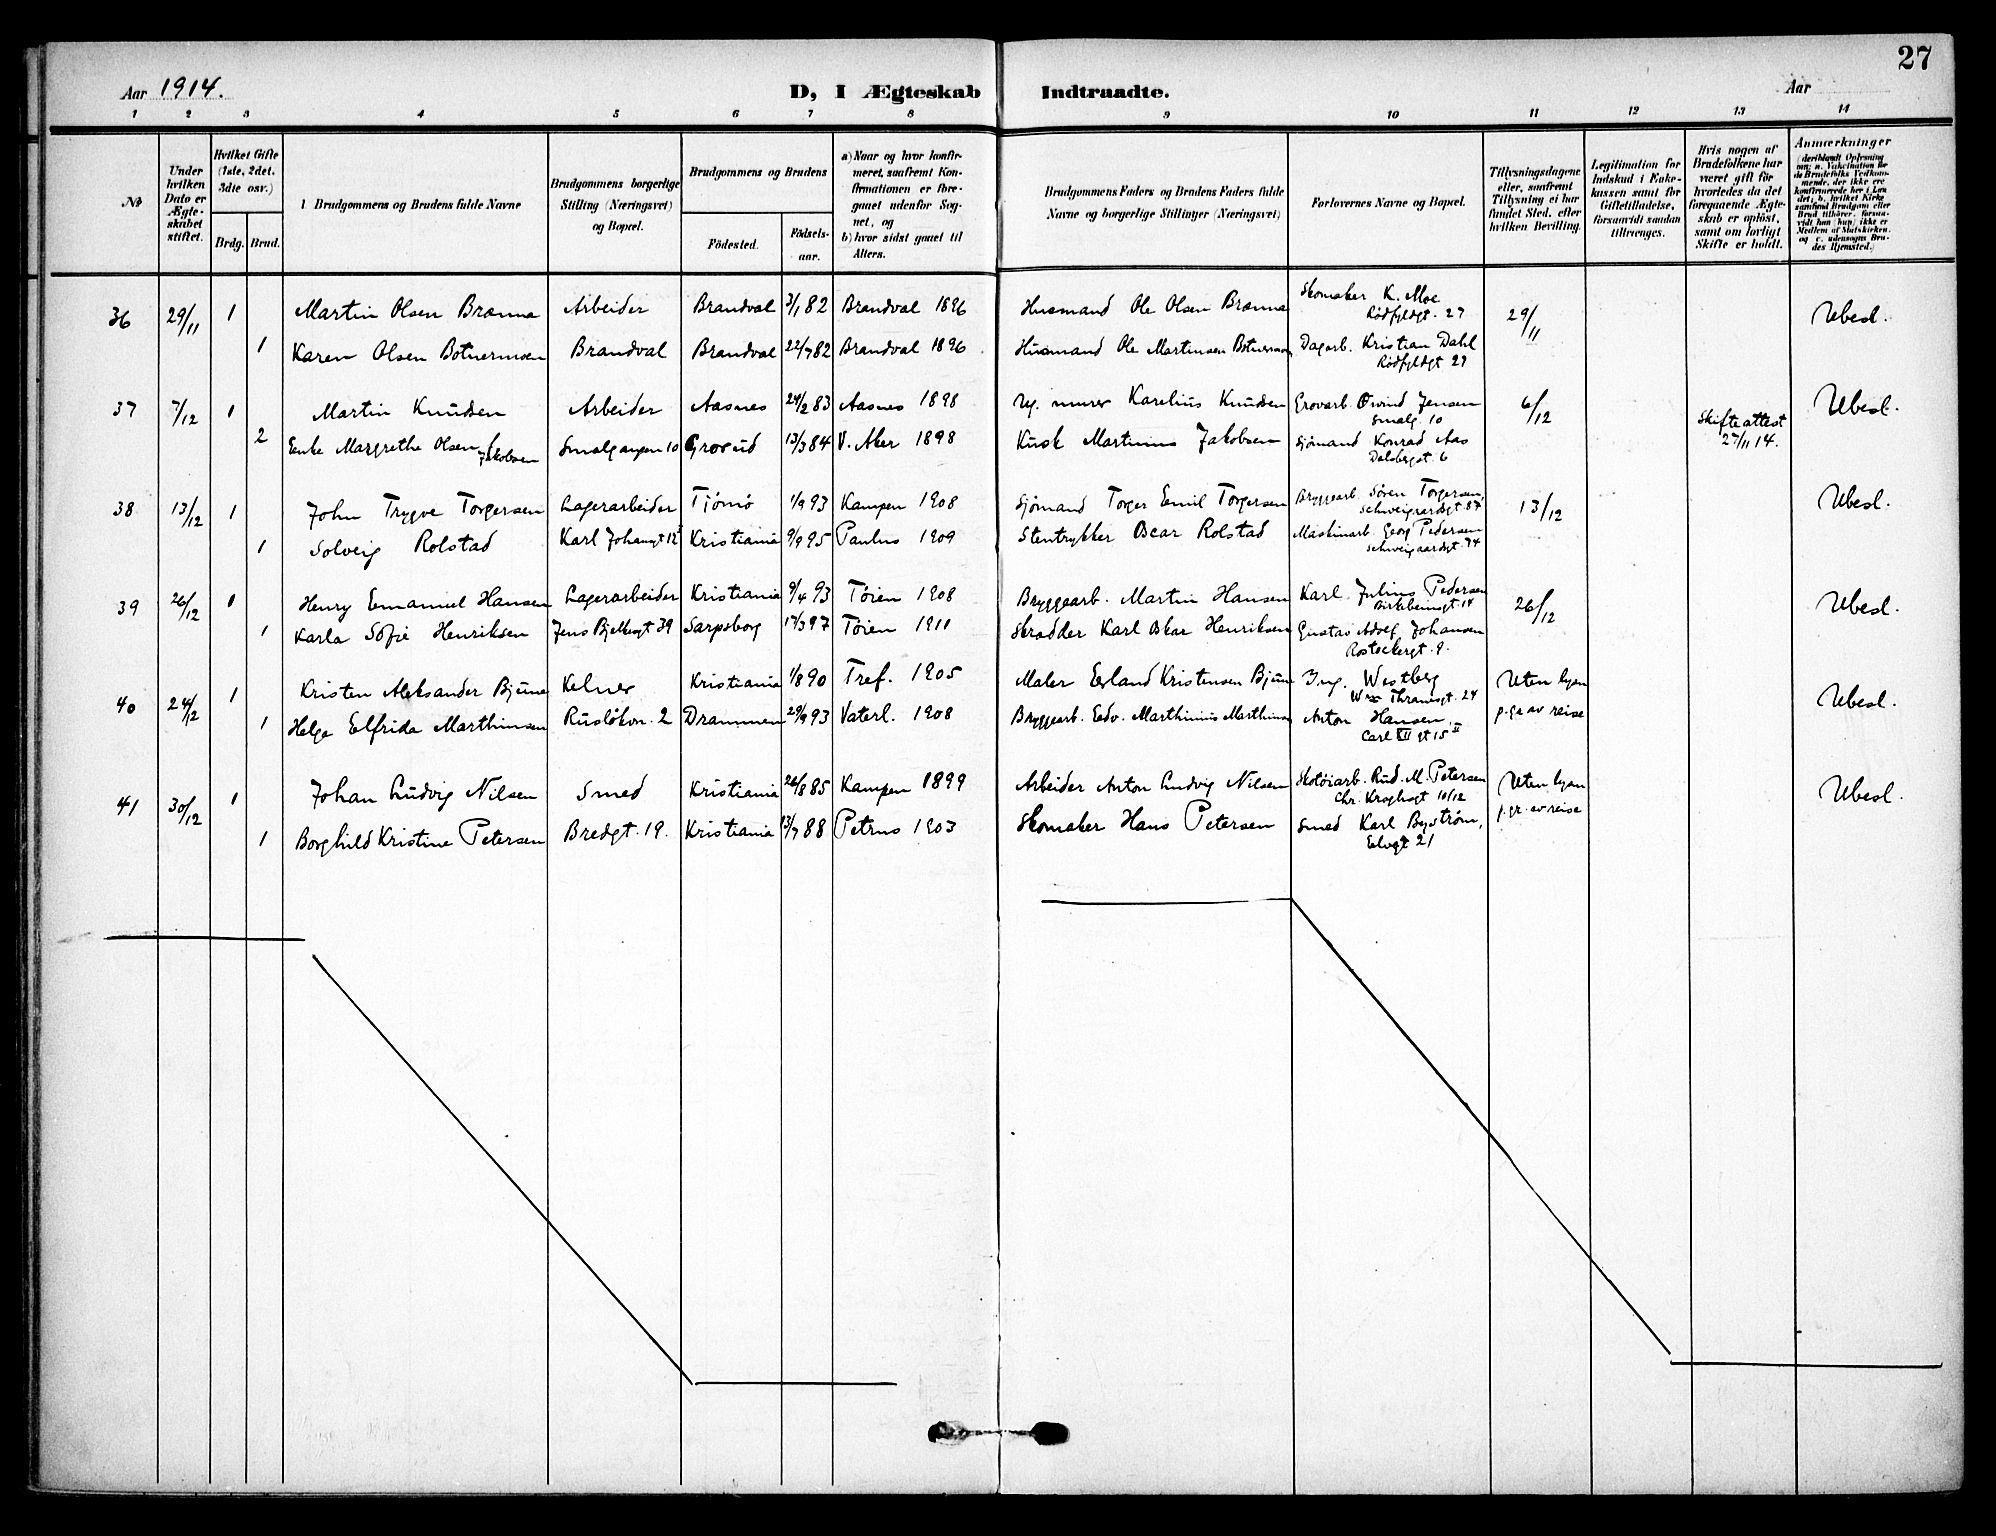 27
Aar 1914.
D, I Ægteskab Indtraadte.
Aar
1 2 3 4 5 6 7 8 9 10 11 12 13 14
No
Under hvilken Dato er Ægteskabet stiftet.
Hvilket Gifte (1ste, 2det, 3die osv.)
Brdg. Brud.
Brudgommens og Brudens fulde Navne
Brudgommens borgerlige Stilling (Næringsvei) og Bopæl.
Brudgommens og Brudens
Födested. Födsels-aar.
a) Naar og hvor konfirmeret, saafremt Konfirmationen er foregaaet udenfor Sognet, og
b) hvor sidst gaaet til Alters.
Brudgommens Faders og Brudens Faders fulde Navne og borgerlige Stillinger (Næringsvei)
Forlovernes Navne og Bopæl.
Tillysningsdagene eller, saafremt Tillysning ei har fundet Sted, efter hvilken Bevilling.
Legitimation for Indskud i Enkekassen samt for Giftetilladelse, forsaavidt saadan tiltrænges.
Hvis nogen af Brudefolkene har været gift för hvorledes da det foregaaende Ægteskab er oplöst, samt om lovligt Skifte er holdt.
Anmærkninger
36 29/11 1 Martin Olsen Brænna Arbeider Brandval 3/1 82 Brandval 1896 Husmand Ole Olsen Brænna Skomaker K. Moe Rödfyldgt. 27 29/11 Ubesl.
1 Karen Olsen Botnermoen Brandval Brandval 22/7 82 Brandval 1896 Husmand Ole Martinsen Botnermoen Dagarb. Kristian Dahl Rödfyldgt 27
37 7/12 1 Martin Knudsen Arbeider Aasnes 24/2 83 Aasnes 1898 murer Karelius Knudsen Grovarb. Øivind Jensen Smalg. 10 6/12 Skifteattest 27/11 14. Ubesl.
2 Enke Margrethe Olsen f. Jakobsen Smalgangen 10 Grorud 13/3 84 V. Aker 1898 Kusk Martinus Jakobsen Sjømand Konrad Aas Dalsbergst. 6
38 13/12 1 John Trygve Torgersen Lagerarbeider Tjömö 1/9 93 Kampen 1908 Sjömand Torger Emil Torgersen Bryggearb. Søren Torgersen, Schweigaardsgt. 87 13/12 Ubesl.
1 Solveig Rolstad Karl Johansgt 12 Kristiania 9/9 95 Paulus 1909 Stentrykker Oscar Rolstad Maskinarb. Georg Pedersen Schweigaardsgt. 74
39 26/12 1 Henry Emanuel Hansen Lagerarbeider Kristiania 9/4 93 Töien 1908 Bryggearb. Martin Hansen Karl Julius Pedersen Birkebeinsgt 14 26/12 Ubesl.
1 Karla Sofie Henriksen Jens Bjelkesgt 39 Sarpsborg 17/3 97 Töien 1911 Skrædder Karl Oskar Henriksen Gustav Adolf Johansen Rostockergt. 9.
40 24/2 1 Kristen Aleksander Bjune Kelner Kristiania 1/8 90 Tref. 1905 Maler Erland Kristensen Bjune Ing. Westberg Thranesgt. 24 Uten lysn. Ubesl.
1 Helga Elfrida Marthinsen Rusløkvn. 2 Drammen 29/9 93 Vaterl. 1908 Bryggearb. Edv. Marthinius Marthinsen Anton Hansen, Carl XII gt 15 II p.gr av reise
41 30/12 1 Johan Ludvig Nilsen Smed Kristiania 26/8 85 Kampen 1899 Arbeider Anton Ludvig Nilsen Skotöiarb. Rud. M. Petersen Chr. Kroghsgt 10/12 Uten lysn. Ubesl.
1 Borghild Kristine Petersen Bredgt. 19. Kristiania 13/7 88 Petrus 1903 Skomaker Hans Petersen Smed Karl Byström, Eelvegt 21 p.gr. av reise